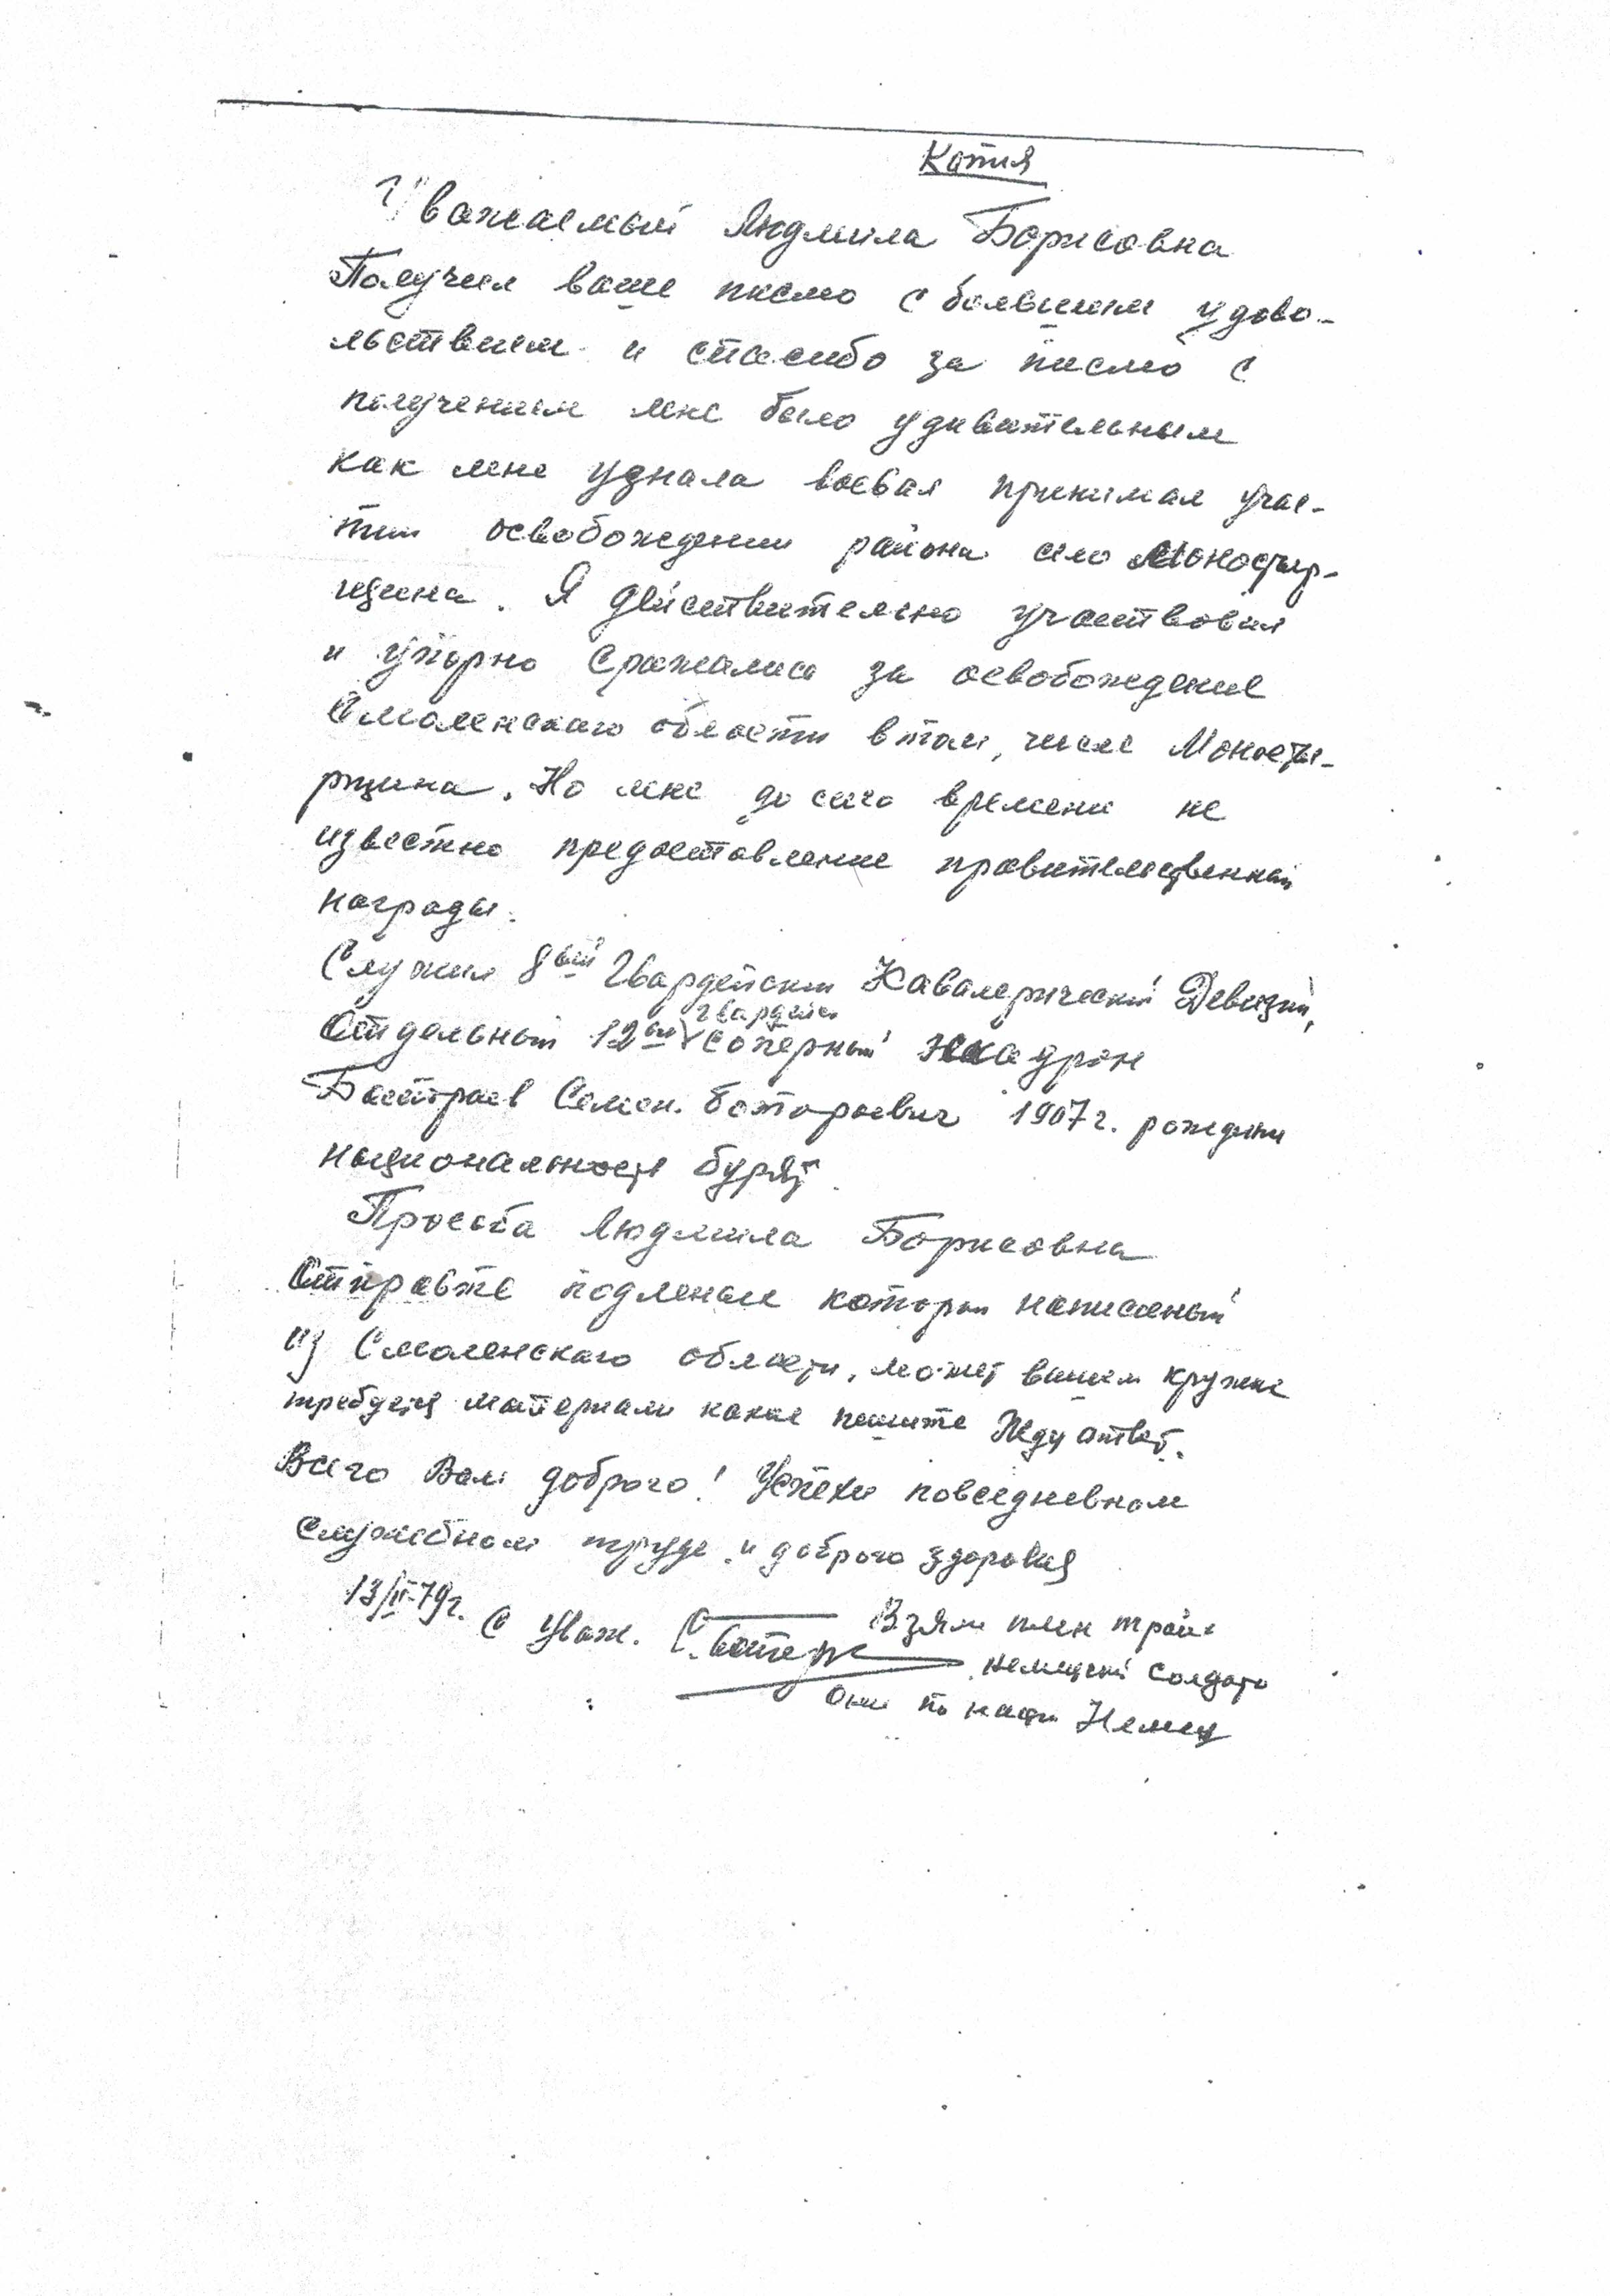 Копия
Уважаемый Людмила Борисовна
Получил ваше писмо с большим удово-
льствием и спасибо за писмо с
получением мне было удивительным
как мне узнала воевал принимал учас-
тии освобождении района село Монастыр-
щина. Я действительно участвовал
и упорно сражались за освобождение
Смоленскаго области в том, числе Монасты-
рщина. Но мне до сего времени не
известно предоставление правительственной
награды.
Служил 8ый Гвардейский Кавалерический Девизии,
Отдельный 12ый гвардейс Соперный эскадрон
Семен Ботороевич 1907 г. рождении
национальность бурят.
Просьба Людмила Борисовна
Отправте подленик которой написанный
из Смоленскаго области, может вашем кружке
требуется материали какие пишите Жду ответ.
Всего Вам доброго! Успехи повседневном
служебном труде и доброго здоровия
13/II-79г. С Уваж.
Взяли плен трой
немецкий солдата
Они по нации Немец